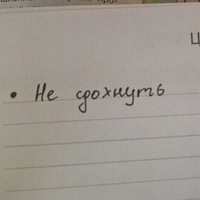 Ц
• Не сдохнуть